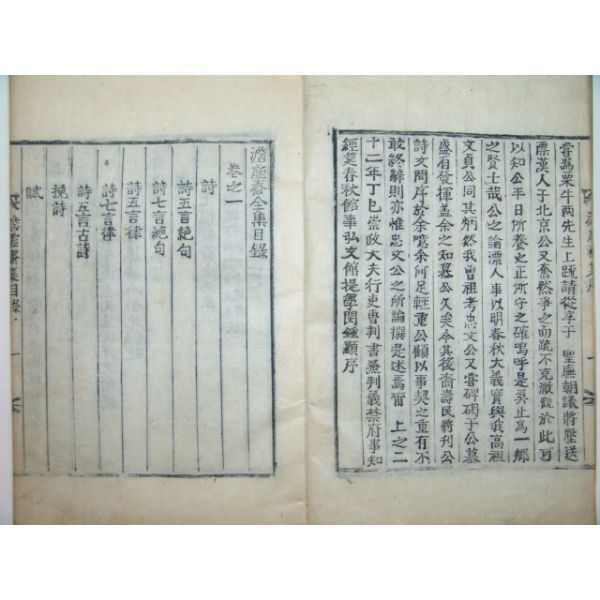 嘗爲栗牛兩先生上疏請從享于 聖廡朝議將壓送
漂漢人于北京公又奮然爭之而疏不克徹觀於此可
以知公平日所養之正所守之確嗚呼是奚止爲一鄕
之賢士哉公之論漂人事以明春秋大義實與我高祖
文貞公同其炳然我曾祖考忠文公又嘗碑碣于公墓
盛有發揮盖余之知慕公久矣今其後裔壽民將刊公
詩文問序於余噫余何足輕重公顧以事契之重有不
敢終辭則亦惟忠文公之所論撰是述焉爾 上之二
十二年丁巳崇政大夫行吏曹判書兼判義禁府事知
經筵春秋館事弘文館提學閔鍾顯序
澹虛齋全集目錄
卷之一
詩
詩五言絕句
詩七言絕句
詩五言律
詩七言律
詩五言古詩
挽詩
賦